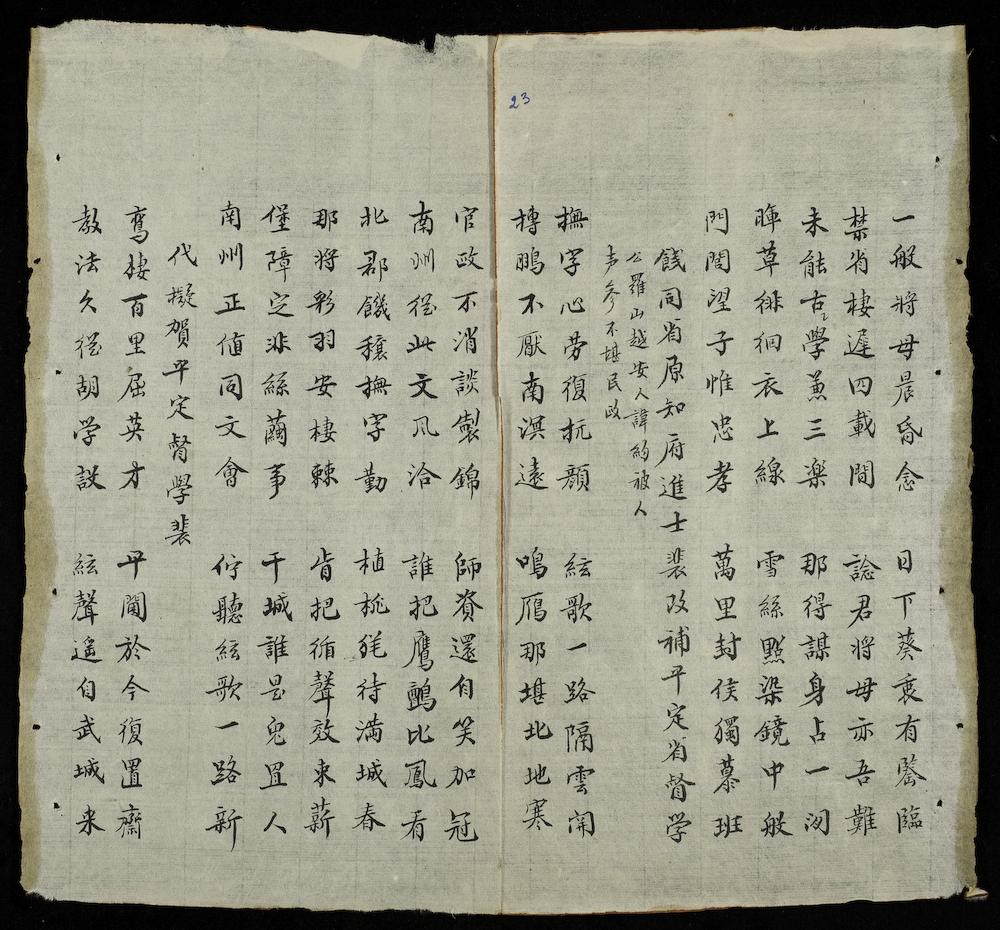 23
一般將母晨昏念 日下葵衷有鑒臨
禁省棲遲四載間 諗君將母亦吾難
未能古學兼三楽 那得謀身占一
暉草徘徊衣上線 雪絲點染鏡中般
門閭望子惟忠孝 萬里封侯獨慕班
餞同省原知府進士裴改補平定省督學
公羅山越安人諱約被人
声参不堪民政
撫字心劳復抗顏 絃歌一路隔雲開
摶鵬不厭南溟遠 鳴鴈那堪北地寒
官政不消談製錦 師資還自笑加冠
南州從此文風洽 誰把鷹鸇比鳳看
北郡饑穰撫字勤 植桃毿待滿城春
那將彩羽安棲棘 肯把循聲效束薪
堡障定非絲繭事 干城誰是兔罝人
南州正值同文會 佇聽絃歌一路新
代擬賀平定督學裴
鸞棲百里屈英才 平閫於今復置齋
教法久從胡学設 絃聲遥自武城来